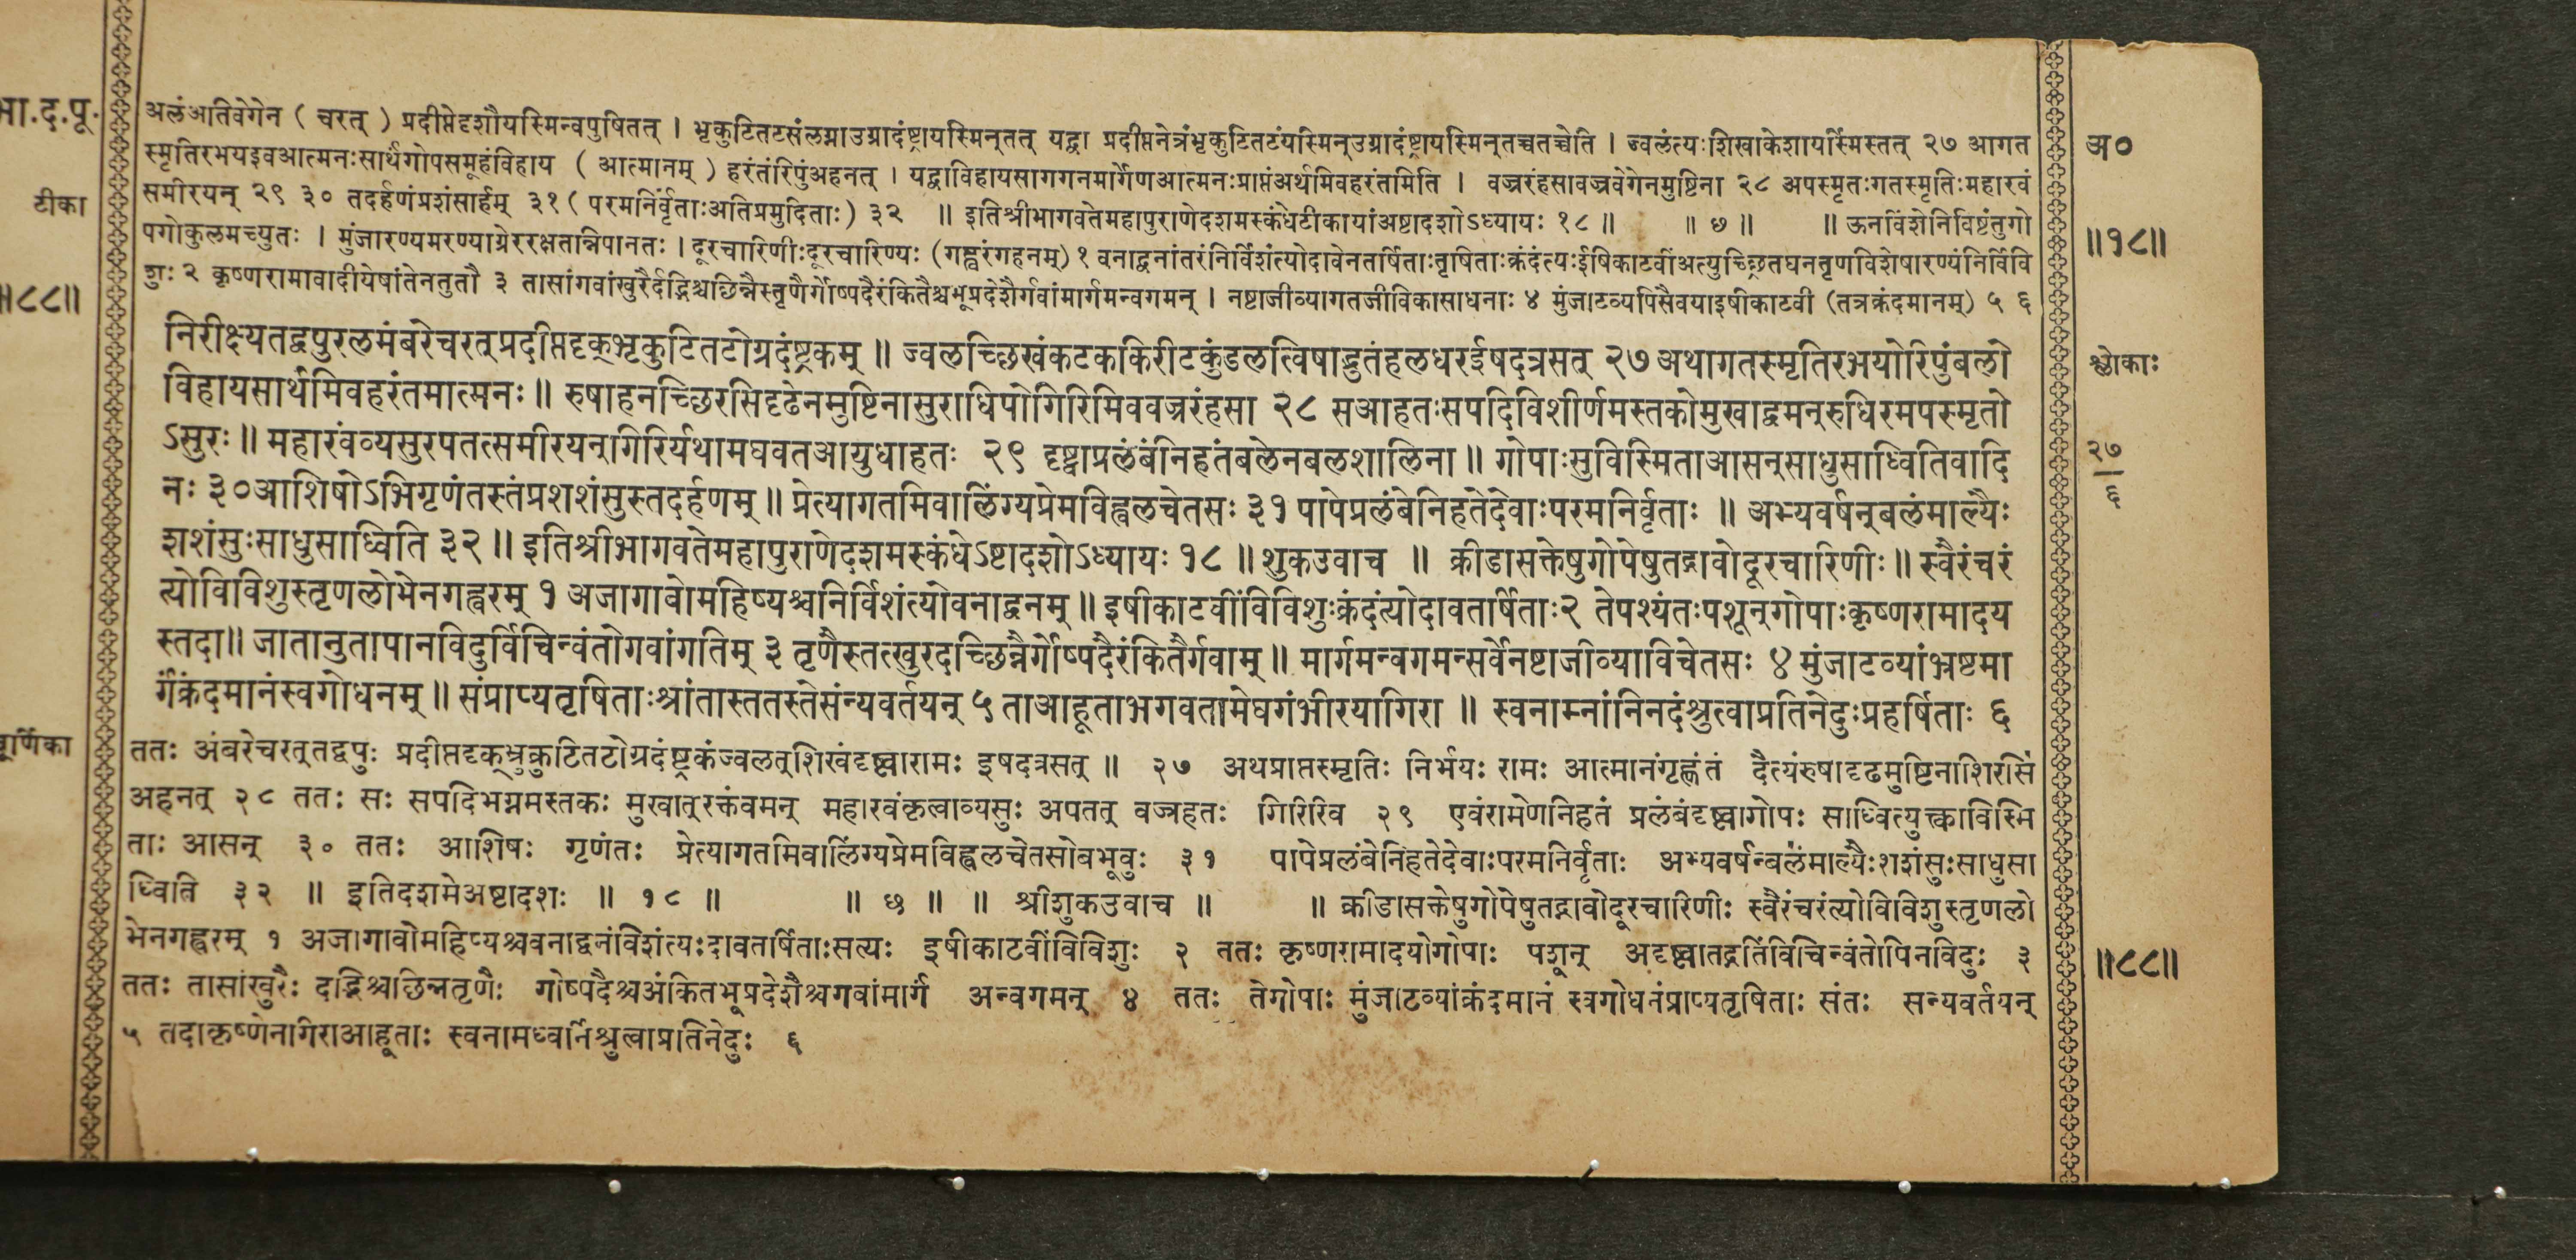 भा.द.पू.
टीका
॥८८॥
चूर्णिका
अलंअतिवेगेन ( चरत् ) प्रदीप्तेदृशौयस्मिन्वपुषितत् । भृकुटितटसंलग्नाउग्रादंष्ट्रायस्मिन्तत् यद्वा प्रदीप्तनेत्रंभृकुटितटंयस्मिन्उग्रादंष्ट्रायस्मिन्तच्चतच्चेति । ज्वलंत्यःशिखाकेशायस्मिंस्तत् २७ आगत
स्मृतिरभयइवआत्मनःसार्थंगोपसमूहंविहाय ( आत्मानम् ) हरंतंरिपुंअहनत् । यद्वाविहायसागगनमार्गेणआत्मनःप्राप्तंअर्थमिवहरंतमिति । वज्ररंहसावज्रवेगेनमुष्टिना २८ अपस्मृतःगतस्मृतिःमहारवं
समीरयन् २९ ३० तदर्हणंप्रशंसार्हम् ३१ ( परमनिर्वृताःअतिप्रमुदिताः) ३२ ॥ इतिश्रीभागवतेमहापुराणेदशमस्कंधेटीकायांअष्टादशोऽध्यायः १८ ॥ ॥ छ ॥ ॥ ऊनविंशेनिविष्टंतुगो
पगोकुलमच्युतः । मुंजारण्यमरण्याग्नेररक्षतान्निपानतः । दूरचारिणीःदूरचारिण्यः (गह्वरंगहनम्) १ वनाद्वनांतरंनिर्विशंत्योदावेनतर्षिताःतृषिताःक्रंदंत्यःईषिकाटवींअत्युच्छ्रितघनतृणविशेषारण्यंनिर्विवि
शुः २ कृष्णरामावादीयेषांतेनतुतौ ३ तासांगवांखुरैर्दद्भिश्चछिन्नैस्तृणैर्गोष्पदैरंकितैश्चभूप्रदेशैर्गवांमार्गमन्वगमन् । नष्टाजीव्यागतजीविकासाधनाः ४ मुंजाटव्यपिसैवयाइषीकाटवी (तत्रक्रंदमानम्) ५ ६
निरीक्ष्यतद्वपुरलमंबरेचरत्प्रदीप्तदृक्भृकुटितटोग्रदंष्ट्रकम् ॥ ज्वलच्छिखंकटककिरीटकुंडलत्विषाद्भुतंहलधरईषदत्रसत् २७ अथागतस्मृतिरभयोरिपुंबलो
विहायसार्थमिवहरंतमात्मनः ॥ रुषाहनच्छिरसिदृढेनमुष्टिनासुराधिपोगिरिमिववज्ररंहसा २८ सआहतःसपदिविशीर्णमस्तकोमुखाद्वमन्रुधिरमपस्मृतो
ऽसुरः ॥ महारवंव्यसुरपतत्समीरयन्गिरिर्यथामघवतआयुधाहतः २९ दृष्ट्वाप्रलंबंनिहतंबलेनबलशालिना ॥ गोपाःसुविस्मिताआसन्साधुसाध्वितिवादि
नः ३०आशिषोऽभिगृणंतस्तंप्रशशंसुस्तदर्हणम् ॥ प्रेत्यागतमिवालिंग्यप्रेमविह्वलचेतसः ३१ पापेप्रलंबेनिहतेदेवाःपरमनिर्वृताः ॥ अभ्यवर्षन्बलंमाल्यैः
शशंसुःसाधुसाध्विति ३२ ॥ इतिश्रीभागवतेमहापुराणेदशमस्कंधेऽष्टादशोऽध्यायः १८ ॥ शुकउवाच ॥ क्रीडासक्तेषुगोपेषुतद्गावोदूरचारिणीः ॥ स्वैरंचरं
त्योविविशुस्तृणलोभेनगह्वरम् १ अजागावोमहिष्यश्चनिर्विशंत्योवनाद्वनम् ॥ इषीकाटवींविविशुःक्रंदंत्योदावतर्षिताः२ तेपश्यंतःपशून्गोपाःकृष्णरामादय
स्तदा॥ जातानुतापानविदुर्विचिन्वंतोगवांगतिम् ३ तृणैस्तत्खुरदच्छिन्नैर्गोष्पदैरंकितैर्गवाम् ॥ मार्गमन्वगमन्सर्वेनष्टाजीव्याविचेतसः ४ मुंजाटव्यांभ्रष्टमा
र्गंक्रंदमानंस्वगोधनम् ॥ संप्राप्यतृषिताःश्रांतास्ततस्तेसंन्यवर्तयन् ५ ताआहूताभगवतामेघगंभीरयागिरा ॥ स्वनाम्नांनिनदंश्रुत्वाप्रतिनेदुःप्रहर्षिताः ६
ततः अंबरेचरत्तद्वपुः प्रदीप्तदृक्भ्रुकुटितटोग्रदंष्ट्रकंज्वलत्शिखंदृष्ट्वारामः इषदत्रसत् ॥ २७ अथप्राप्तस्मृतिः निर्भयः रामः आत्मानंगृह्णंतं दैत्यंरुषादृढमुष्टिनाशिरसि
अहनत् २८ ततः सः सपदिभग्नमस्तकः मुखात्रक्तंवमन् महारवंकृत्वाव्यसुः अपतत् वज्रहतः गिरिरिव २९ एवंरामेणनिहतं प्रलंबंदृष्ट्वागोपः साध्वित्युक्त्वाविस्मि
ताः आसन् ३० ततः आशिषः गृणंतः प्रेत्यागतमिवालिंग्यप्रेमविह्वलचेतसोबभूवुः ३१ पापेप्रलंबेनिहतेदेवाःपरमनिर्वृताः अभ्यवर्षन्बलंमाल्यैःशशंसुःसाधुसा
ध्विति ३२ ॥ इतिदशमेअष्टादशः ॥ १८ ॥ ॥ छ ॥ ॥ श्रीशुकउवाच ॥ ॥ क्रीडासक्तेषुगोपेषुतद्गावोदूरचारिणीः स्वैरंचरंत्योविविशुस्तृणलो
भेनगह्वरम् १ अजागावोमहिष्यश्चवनाद्वनंविशंत्यःदावतर्षिताःसत्यः इषीकाटवींविविशुः २ ततः कृष्णरामादयोगोपाः पशून् अदृष्ट्वातद्गतिंविचिन्वंतोपिनविदुः ३
ततः तासांखुरैः दद्भिश्चछिन्नतृणैः गोष्पदैश्चअंकितभूप्रदेशैश्चगवांमार्गं अन्वगमन् ४ ततः तेगोपाः मुंजाटव्यांक्रंदमानं स्वगोधनंप्राप्यतृषिताः संतः सन्यवर्तयन्
५ तदाकृष्णेनगिराआहूताः स्वनामध्वनिंश्रुत्वाप्रतिनेदुः ६
अ०
॥१८॥
श्लोकाः
२७
६
॥८८॥